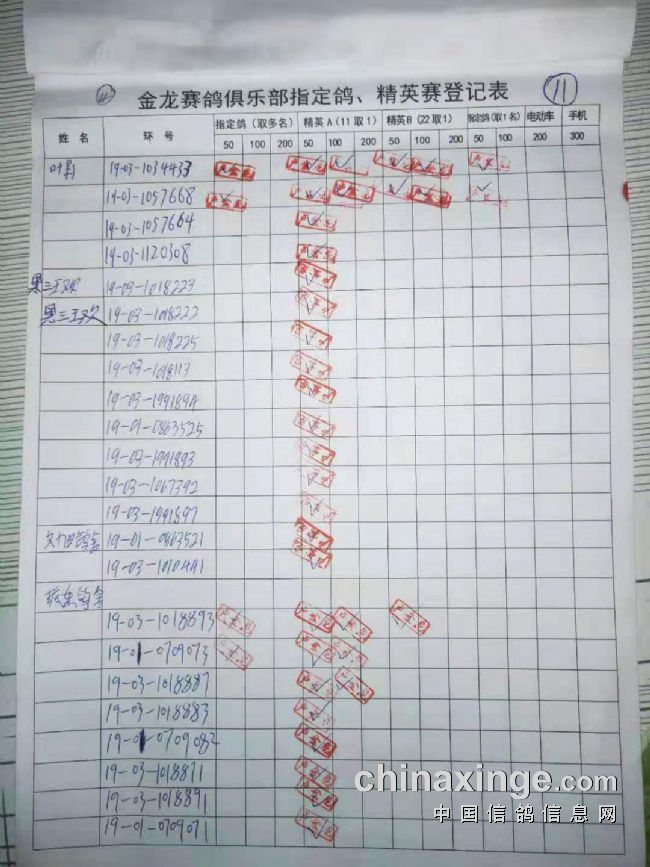 金龙赛鸽俱乐部指定鸽、精英赛登记表 11
姓 名 环 号 指定鸽（取多名） 精英A(11取1) 精英B(22取1) 指定鸽(取1名) 电动车 手机
50 100 200 50 100 200 50 100 200 50 100 200 300
19-03-1034433
19-03-1057668
19-03-1057664
19-03-1120308
黑三王双欠 19-03-1018223
黑三王双欠 19-03-1018222
19-03-1018225
19-03-1018113
19-03-1991894
19-01-0863525
19-03-1991893
19-03-1067392
19-03-1991897
19-01-0863521
19-03-1010441
19-03-1018893
19-01-0709073
19-03-1018887
19-03-1018883
19-01-0709082
19-03-1018871
19-03-1018891
19-01-0709071
chinaxinge.com
中国信鸽信息网